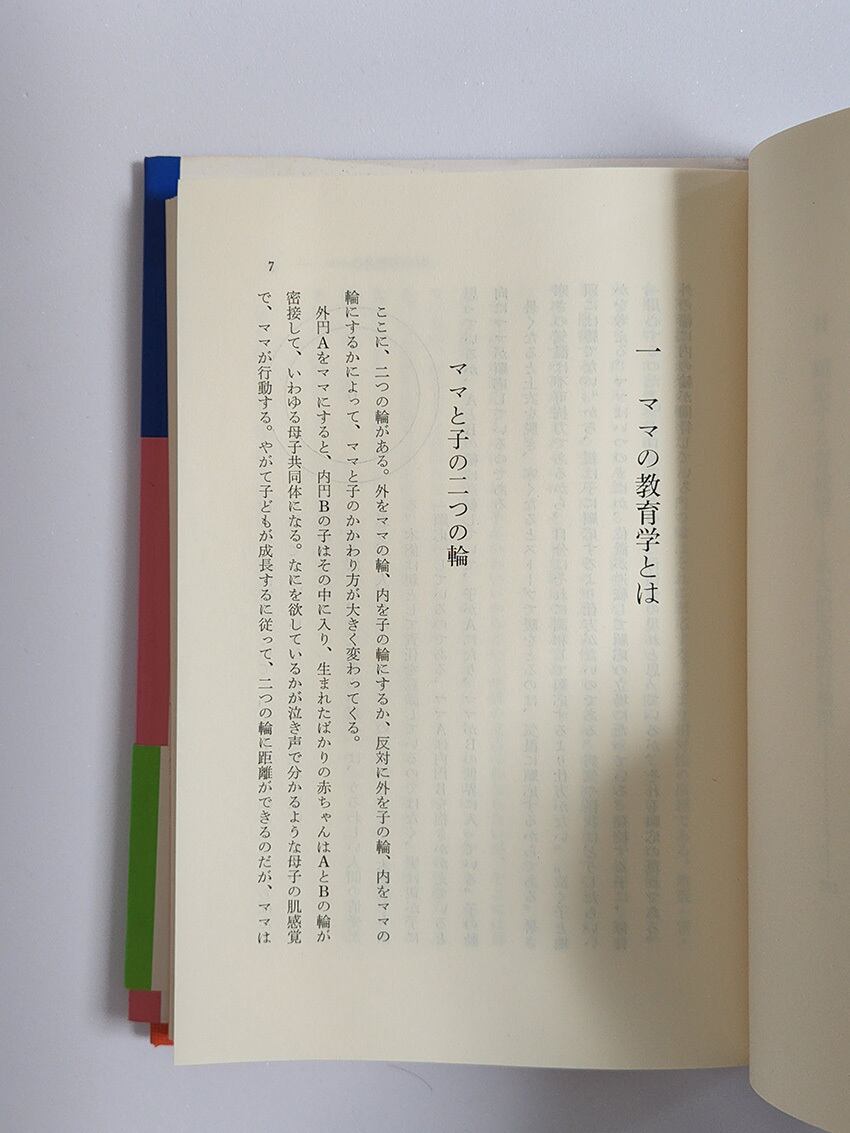 一　ママの教育学とは
ママと子の二つの輪
ここに、二つの輪がある。外をママの輪、内を子の輪にするか、反対に外を子の輪、内をママの
輪にするかによって、ママと子のかかわり方が大きく変わってくる。
外円Aをママにすると、内円Bの子はその中に入り、生まれたばかりの赤ちゃんはAとBの輪が
密接して、いわゆる母子共同体になる。なにを欲しているかが泣き声で分かるような母子の肌感覚
で、ママが行動する。やがて子どもが成長するに従って、二つの輪に距離ができるのだが、ママは
7